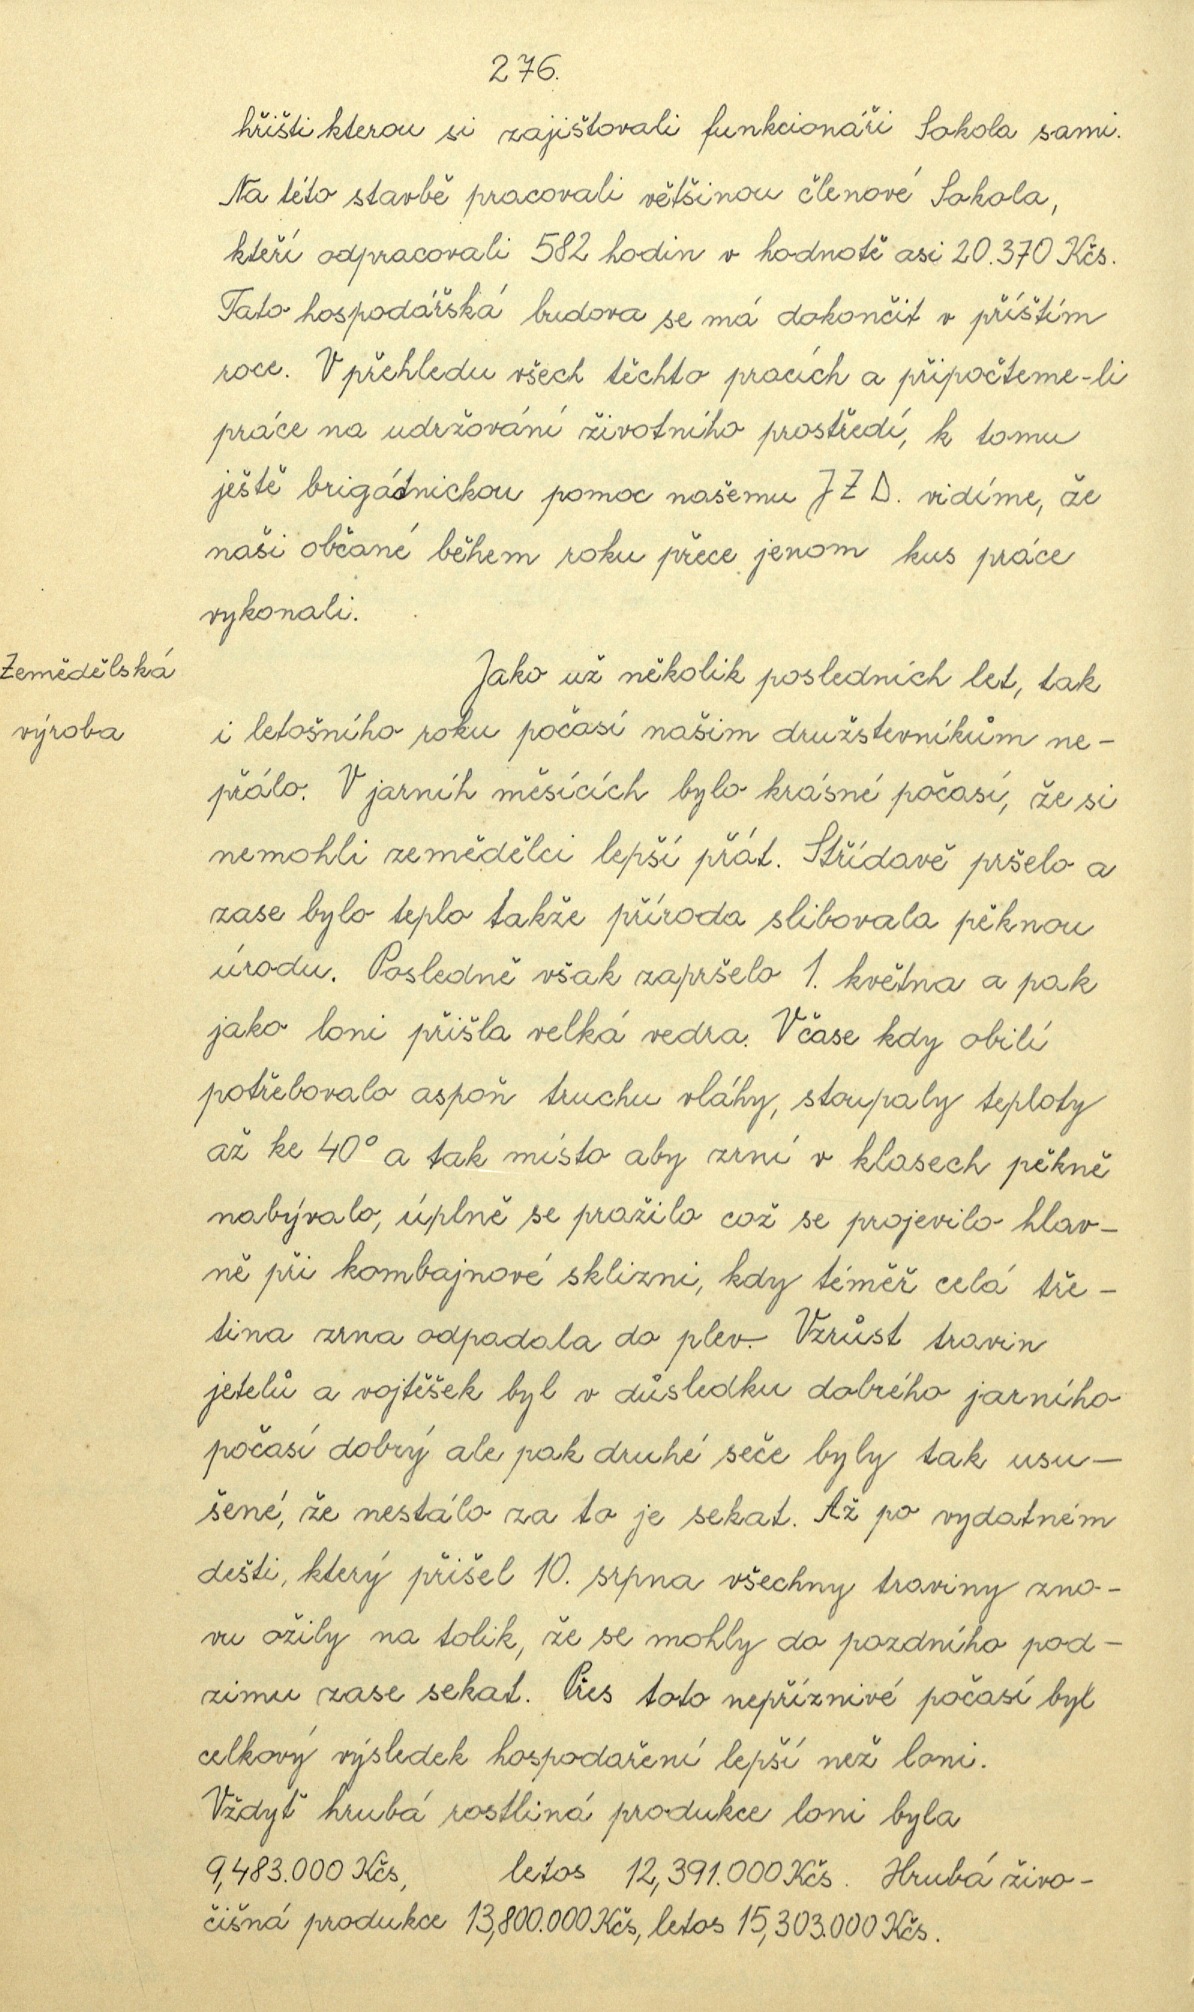 276.
hřišti kterou si zajišťovali funkcionáři Sokola sami.
Na této stavbě pracovali většinou členové Sokola,
kteří odpracovali 582 hodin v hodnotě asi 20.370 Kčs.
Tato hospodářská budova se má dokončit v příštím
roce. V přehledu všech těchto pracích a připočteme-li
práce na udržování životního prostředí, k tomu
ještě brigádnickou pomoc našemu J Z D. vidíme, že
naši občané během roku přece jenom kus práce
vykonali.
Zemědělská
výroba
Jako už několik posledních let, tak
i letošního roku počasí našim družstevníkům ne-
přálo. V jarních měsících bylo krásné počasí, že si
nemohli zemědělci lepší přát. Střídavě pršelo a
zase bylo teplo takže příroda slibovala pěknou
úrodu. Posledně však zapršelo 1. května a pak
jako loni přišla velká vedra. V čase kdy obilí
potřebovalo aspoň truchu vláhy, stoupaly teploty
až ke 40° a tak místo aby zrní v klasech pěkně
nabývalo, úplně se pražilo což se projevilo hlav-
ně při kombajnové sklizni, kdy téměř celá tře-
tina zrna odpadala do plev. Vzrůst travin
jetelů a vojtěšek byl v důsledku dobrého jarního
počasí dobrý ale pak druhé seče byly tak usu-
šené, že nestálo za to je sekat. Až po vydatném
dešti, který přišel 10. srpna všechny traviny zno-
vu ožily na tolik, že se mohly do pozdního pod-
zimu zase sekat. Přes toto nepříznivé počasí byl
celkový výsledek hospodaření lepší než loni.
Vždyť hrubá rostliná produkce loni byla
9,483.000 Kčs, letos 12,391.000 Kčs. Hrubá živo-
čišná produkce 13,800.000 Kčs, letos 15,303.000 Kčs.